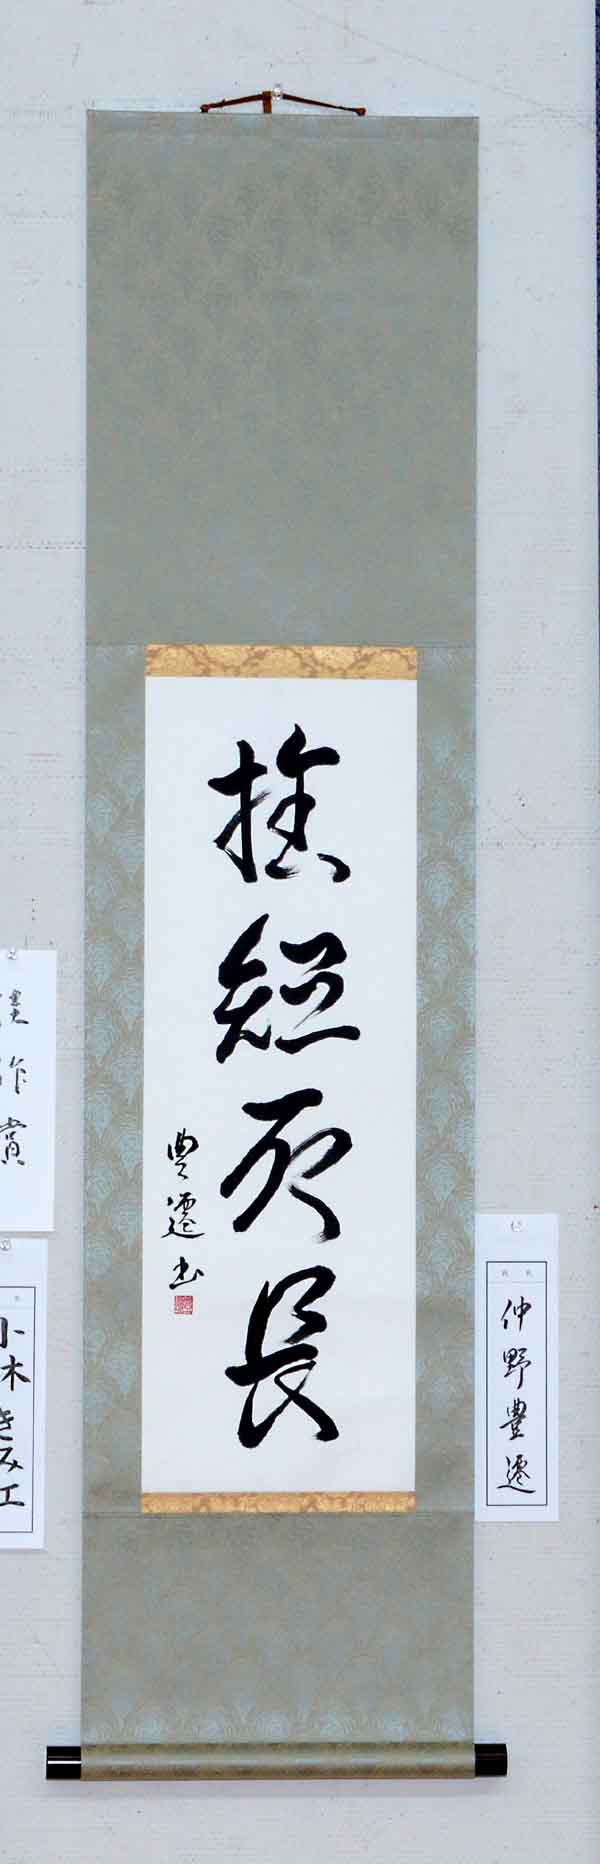 捨短取長
豊遷書
仲野豊遷
作賞
小木きみ江